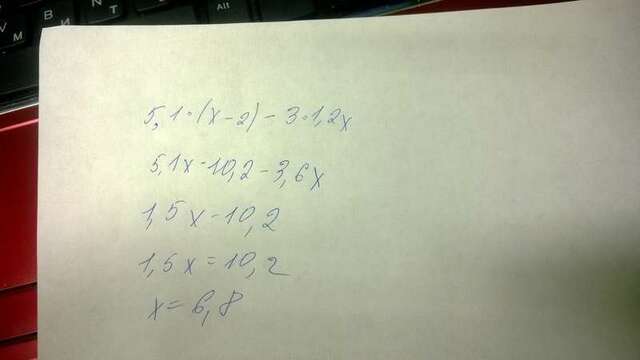 V
B
N
M
И
Т
Alt
5,1·(x-2)-3·1,2x
5,1x-10,2-3,6x
1,5x-10,2
1,5x=10,2
x=6,8